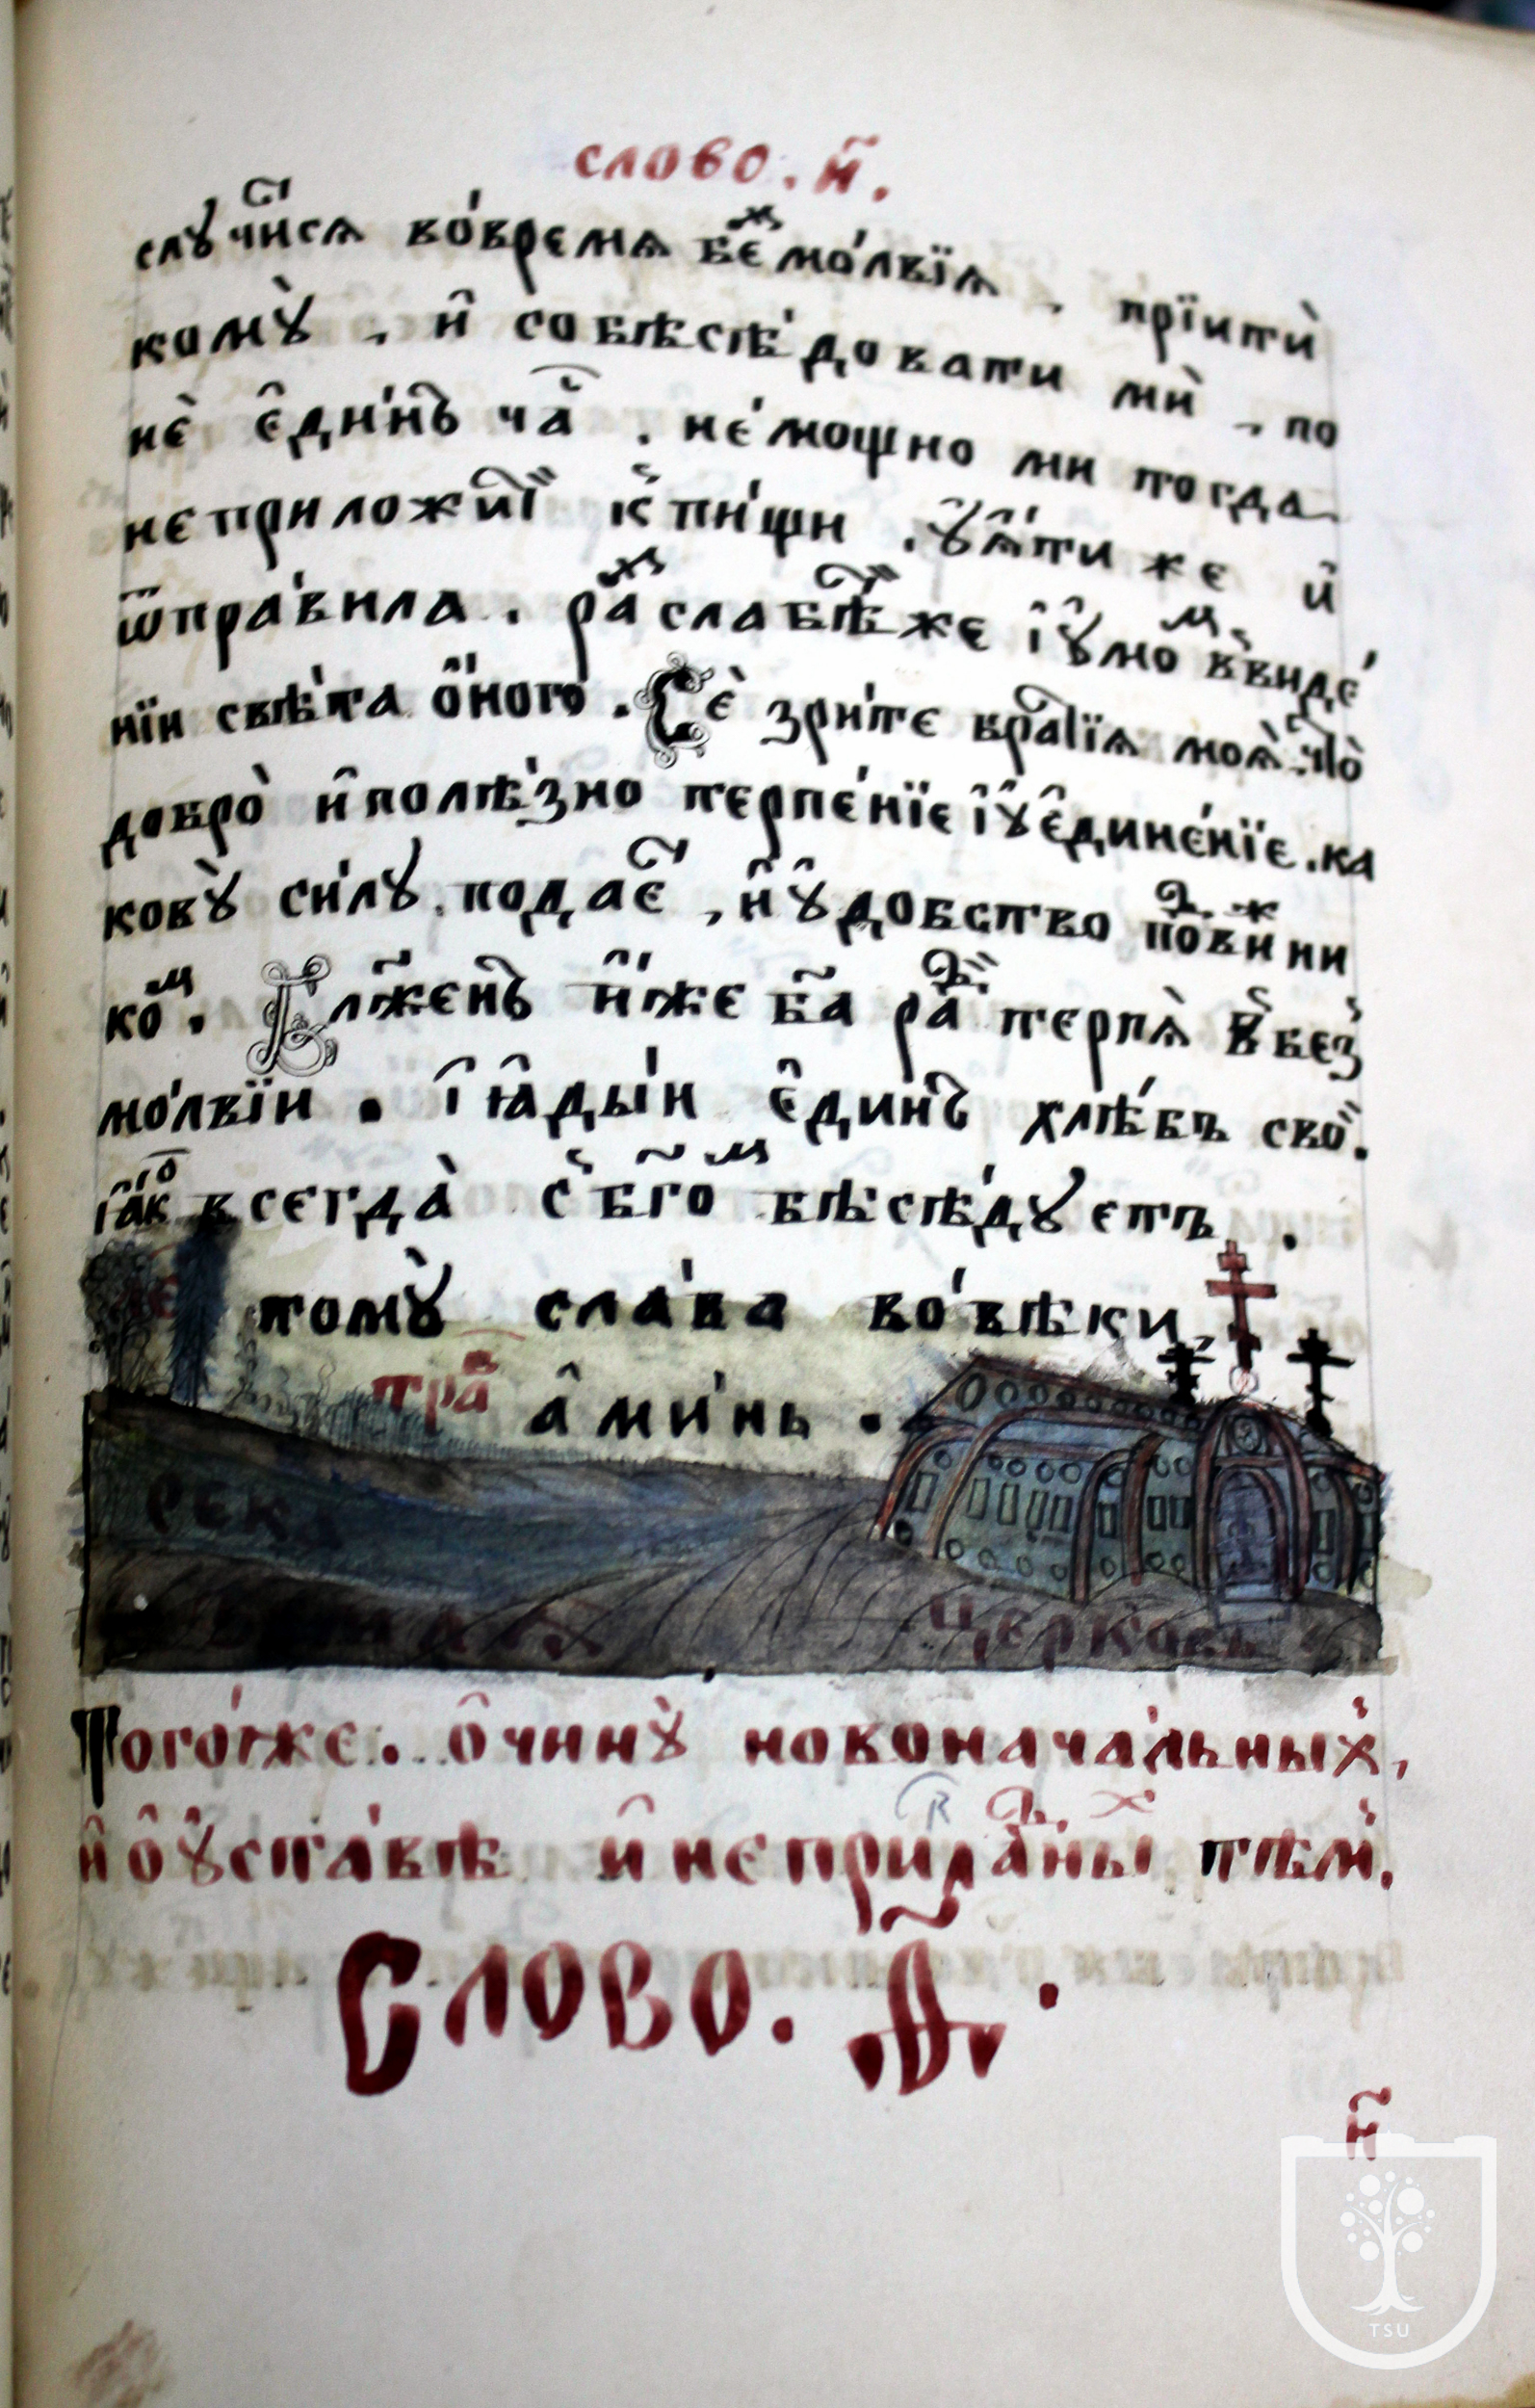 слово. и҃.
случи́ⷭ҇сѧ во́времѧ бе́ⷥмо́лвїѧ, прїитѝ
комꙋ̀, и҆ собѣсѣ́довати мѝ, по
нѐ є҆ди́нъ ча́ⷭ. не́мощно ми тогда
неприложи́тⷤї к̾пи́щи. ꙋ҆ѧ҆́ти же и҆
ѿпра́вила. ра́ⷥслабѣ́ⷮже і҆ꙋ҆мо́ⷨ в̾виде́
нїи свѣ́та ѻ҆́ного. Сѐ зри́те бра́тїѧ моѧ̀. что̀
добро̀ и҆полѣ́зно терпе́нїе і҆ꙋ҆є҆дине́нїе. ка
ковꙋ̀ си́лꙋ подае́ⷭ, и҆ꙋ҆добство по́ⷣви́ⷤни
ко́ⷨ. Бл҃же́нъ и҆́же бг҃а ра́ⷣ терпѧ̀ в̾без̾
мо́лвїи. і҆ ꙗ҆ды́и є҆ди́нъ хлѣ́бъ свой.
ꙗ҆́кⷪ всегда̀ с̾ бг҃оⷨ бѣсѣ́дꙋетъ.
томꙋ̀ сла́ва во́вѣки,
тра҃в а҆ми́нь.
река
церковь
Того́же. ѻ҆чинꙋ̀ новонача́льныⷯ,
и҆ ѻ҆ꙋ҆ста́вѣ и҆ непри́даⷣныⷯ тѣⷨ.
Слово. а҃.
и҃
TSU